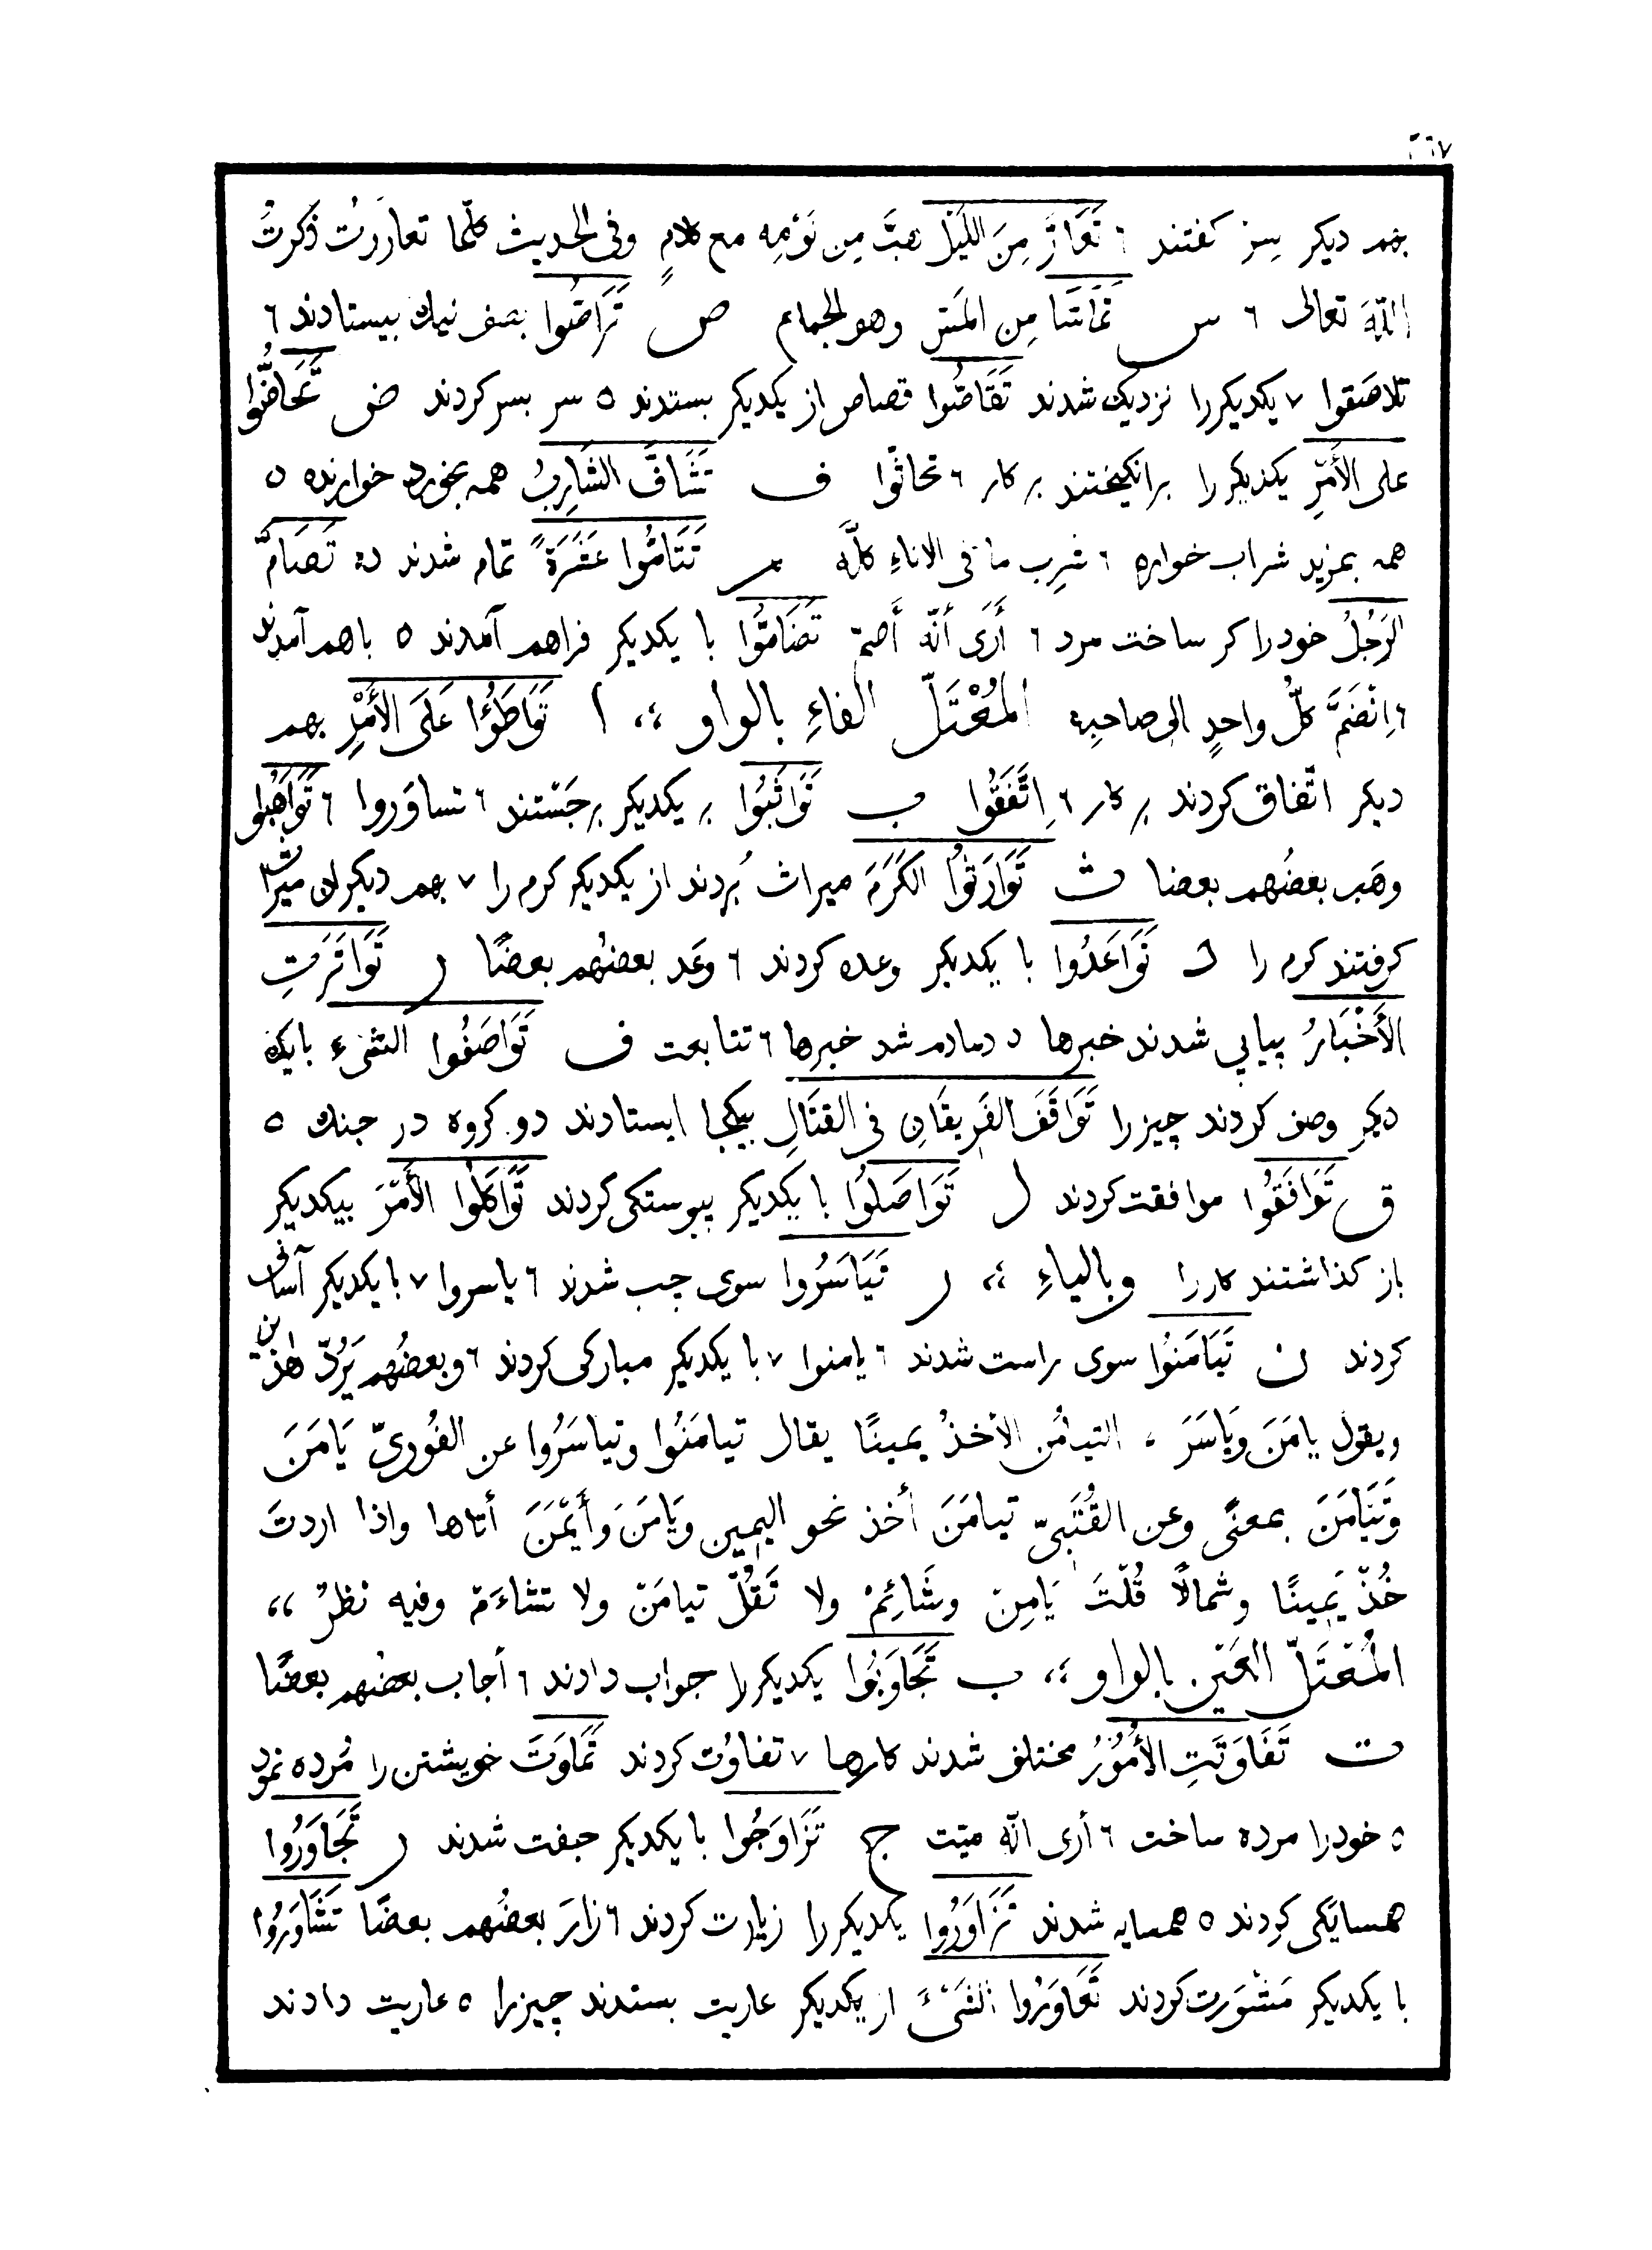 بهم دیکر سِرّ کفتند ٦ تَعَارَّ مِنَ اللَّیْلِ هبَّ مِن نَوْمِه مع کلامٍ وفی الحدیث کلّما تعاررتُ ذکرتُ
اللّهَ تعالی ٦ س تَمَاسَّا مِن المَسّ وهو الجماع ص تَرَاصُّوا بصف نیك بیستادند ٦
تلاصَقوا ٧ یکدیکررا نزدیك شدند تَقَاصُّوا قصاص از یکدیکر بستدند ٥ سر بسر کردند ض تَحَاضُّوا
علی الأَمْرِ یکدیکررا برانکیختند بر کار ٦ تحاثّوا ف تَشَافَّ الشَارِبُ همه بخورد خوارنده ٥
همه بمزید شراب خواره ٦ شرِب ما فی الاناءِ کلَّه م تَتَامُّوا عَشَرَةً تمام شدند ده تَصَامَّ
الرَجُلُ خودرا کر ساخت مرد ٦ أَرَی أَنّه أَصمّ تَضَامُّوا با یکدیکر فراهم آمدند ٥ باهم آمدند
٦ اِنْضَمَّ کلُّ واحدٍ الی صاحبِه المُعْتَلّ الفاءِ بالواو ،، ا تَوَاطَؤُا عَلَی الأَمْرِ بهم
دیکر اتّفاق کردند بر کار ٦ اِتَّفَقُوا ب تَوَاثَبُوا بر یکدیکر برجَستند ٦ تساوَروا ٦ تَوَاهَبُوا
وهَب بعضُهم بعضا ث تَوَارَثُوا الکَرَمَ میراث بُردند از یکدیکر کرم را ٧ بهم دیکران میراث
کرفتند کرم را د تَوَاعَدُوا با یکدیکر وعده کردند ٦ وعَد بعضُهم بعضًا ر تَوَاتَرَتِ
الأَخْبَارُ پیاپی شدند خبرها ٥ دمادم شد خبرها ٦ تتابعت ف تَوَاصَفُوا الشیء بایك
دیکر وصف کردند چیزرا تَوَاقَفَ الفَرِیقَانِ فی القتَالِ بیکجا ایستادند دو کروه در جنك ٥
ق تَوَافَقُوا موافقت کردند ل تَوَاصَلوُا با یکدیکر پیوستکی کردند تَوَاکَلُوا الأَمْرَ بیکدیکر
باز کذاشتند کاررا وبالیاءِ ،، ر تَیَاسَرُوا سوی چپ شدند ٦ یاسروا ٧ با یکدیکر آسانی
کردند ن تَیَامَنُوا سوی راست شدند ٦ یامنوا ٧ با یکدیکر مبارکی کردند ٦ وبعضُهم یَرُدّ هذین
ویقول یامَنَ ویَاسَرَ ، التیامُن الأخذُ یمینًا یقال تیامَنُوا وتیاسَرُوا عن الغُوریّ یَامَنَ
وَتَیَامَنَ بمعنًی وعن القُتَبیّ تیامَنَ أخذ نحو الیمین ویَامَنَ وأَیْمَنَ أتاها واذا اردتَ
خُذْ یَمِینًا وشمالًا قُلْتَ یَامِنْ وشَائِمْ ولا تَقُلْ تیامَنْ ولا تشاءَمْ وفیه نظرٌ ،،
المُعْتَلّ العَیْنِ بالواو ،، ب تَجَاوَبُوا یکدیکررا جواب دادند ٦ أجاب بعضُهم بعضًا
ت تَفَاوَتَتِ الأُمُوُرُ مختلف شدند کارها ٧ تفاوُت کردند تَمَاوَتَ خویشتن را مُرده نمود
٥ خودرا مرده ساخت ٦ أری انّه میّت ج تَزَاوَجُوا با یکدیکر جفت شدند ر تَجَاوَرُوا
همسایکی کردند ٥ همسایه شدند تَزَاوَرُوا یکدیکررا زیارت کردند ٦ زارَ بعضُهم بعضًا تَشَاوَرُوا
با یکدیکر مَشْوَرت کردند تَعَاوَرُوا الشَیْءَ از یکدیکر عاریت بستدند چیزرا ٥ عاریت دادند